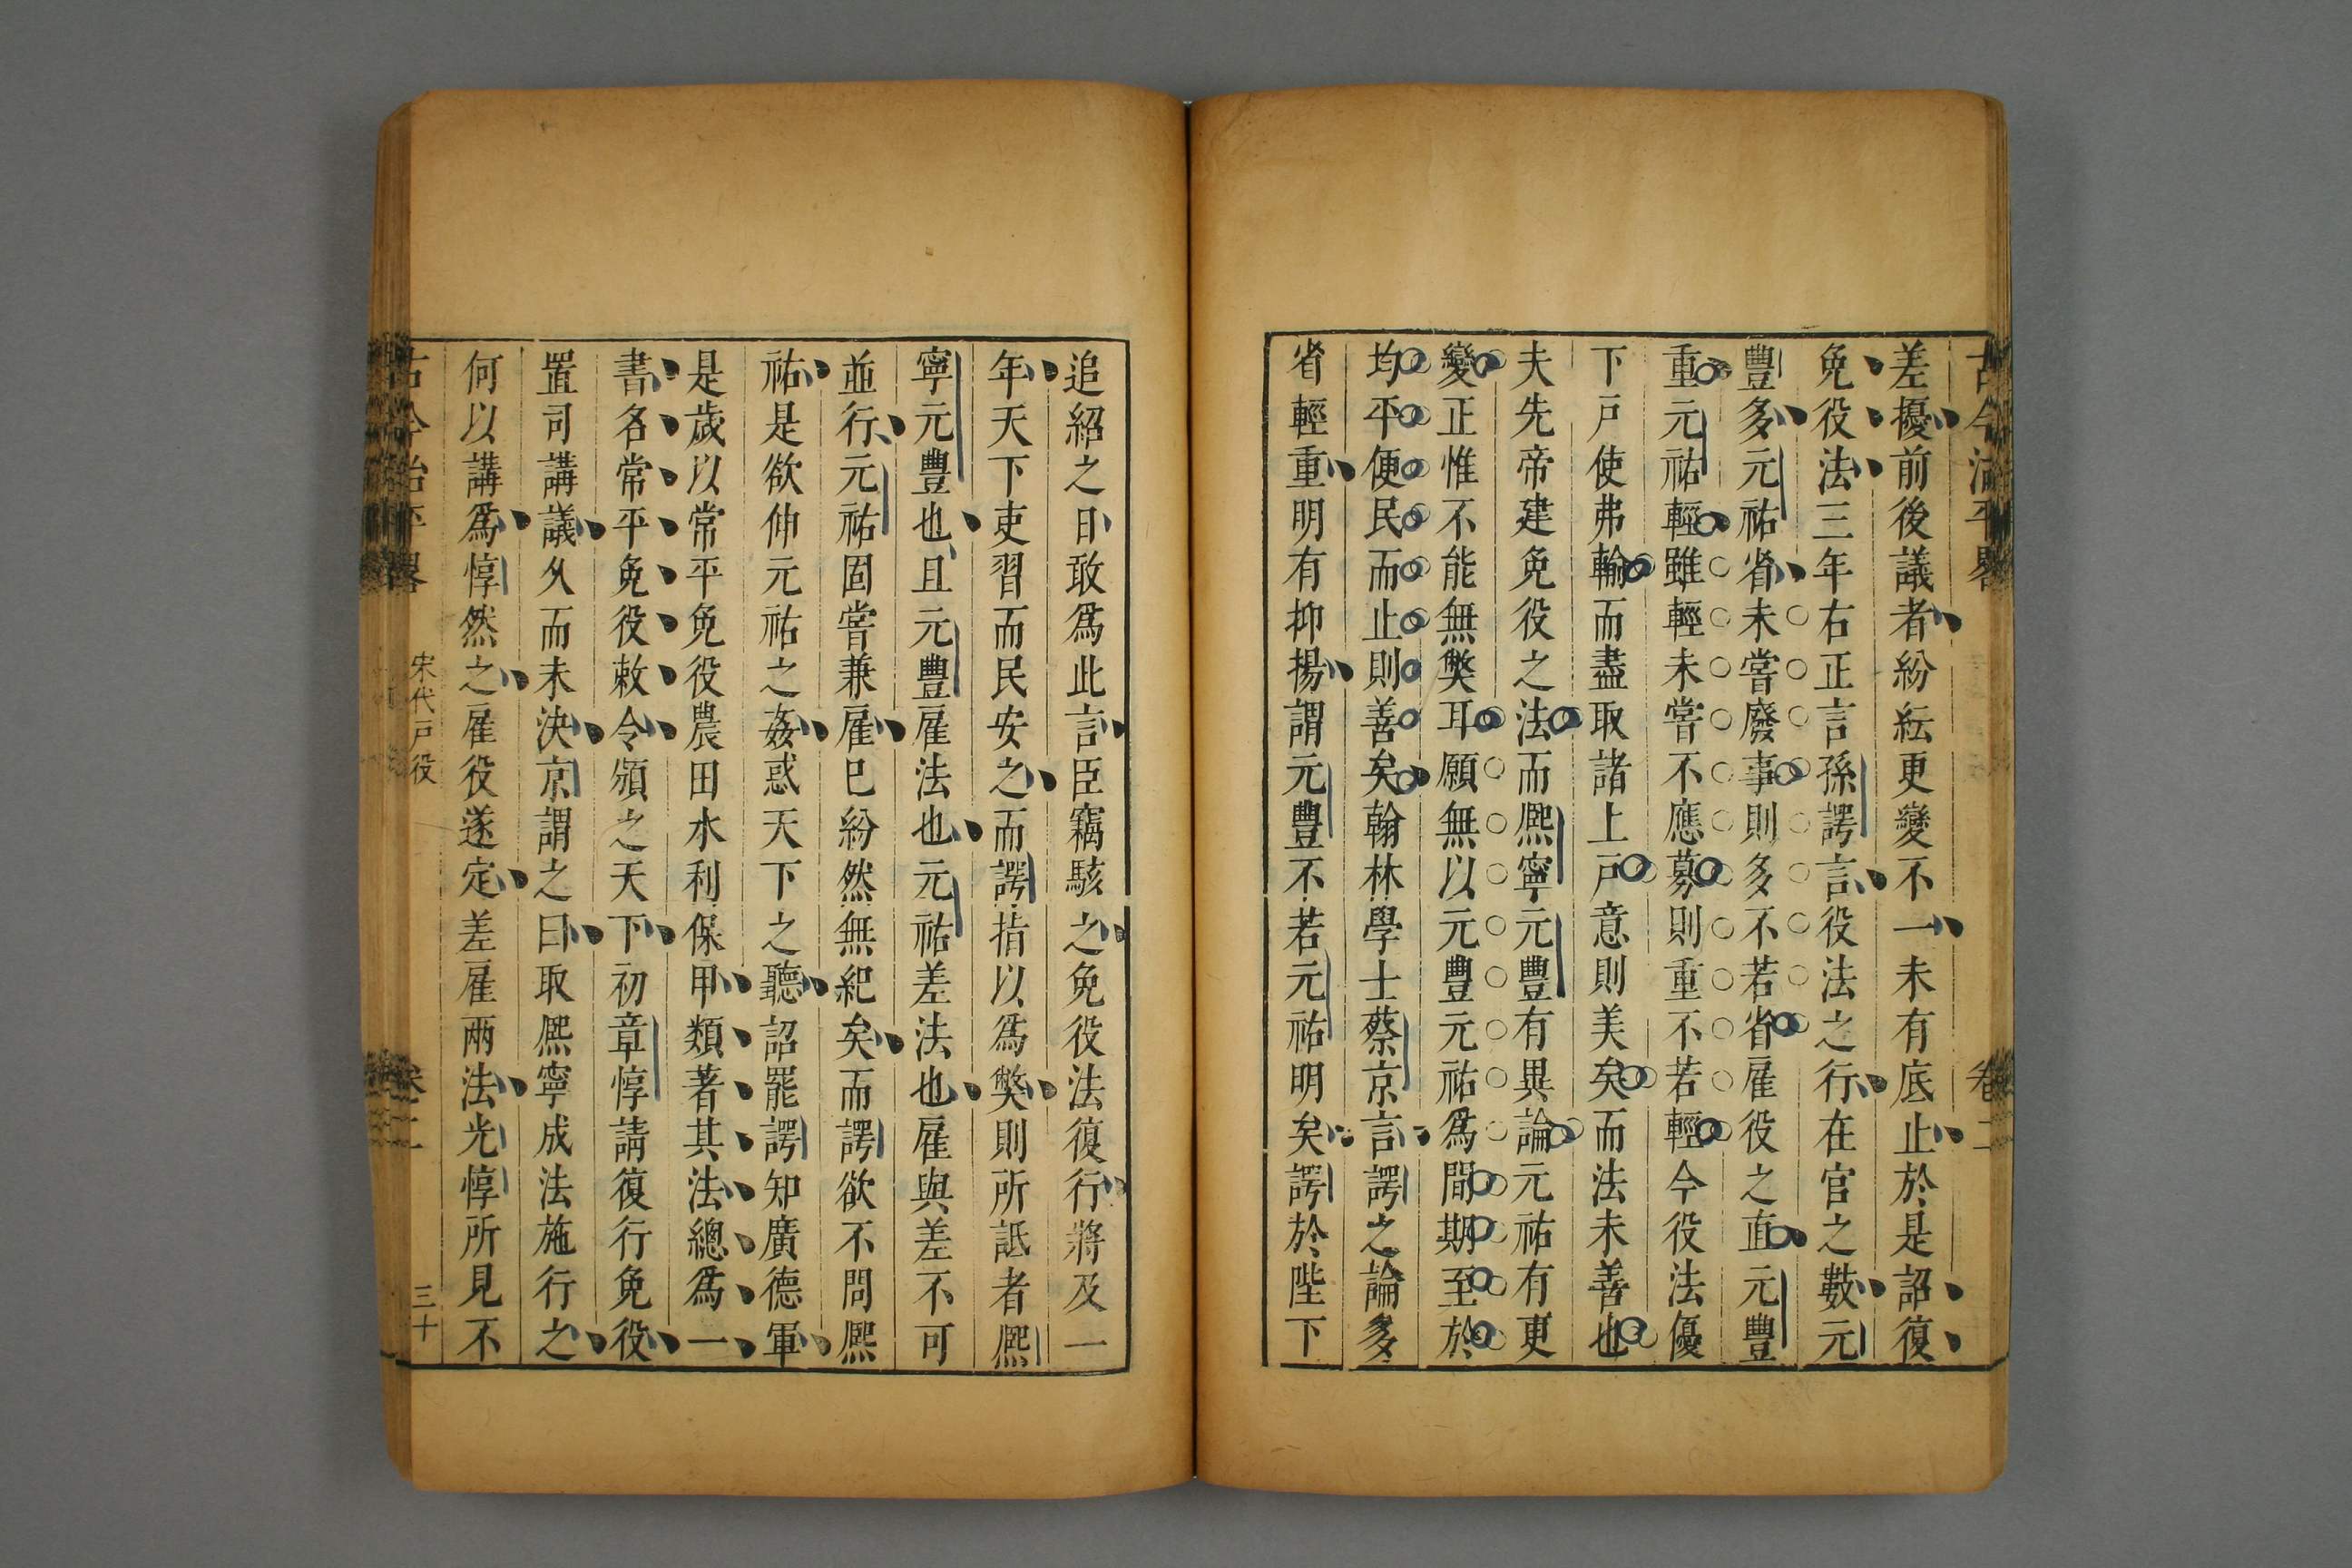 古今治平畧
卷二
差擾前後議者紛紜更變不一未有底止於是詔復
免役法三年右正言孫諤言役法之行在官之數元
豐多元祐省未嘗廢事則多不若省雇役之直元豐
重元祐輕雖輕未嘗不應募則重不若輕今役法優
下戸使弗輸而盡取諸上戸意則美矣而法未善也
夫先帝建免役之法而熈寧元豐有異論元祐有更
變正惟不能無獘耳願無以元豐元祐爲間期至於
均平便民而止則善矣翰林學士蔡京言諤之論多
省輕重明有抑揚謂元豐不若元祐明矣諤於陛下
追紹之日敢爲此言臣竊駭之免役法復行將及一
年天下吏習而民安之而諤指以爲獘則所詆者熈
寧元豐也且元豐雇法也元祐差法也雇與差不可
並行元祐固嘗兼雇已紛然無紀矣而諤欲不問熈
祐是欲伸元祐之姦惑天下之聽詔罷諤知廣德軍
是歲以常平免役農田水利保甲類著其法總爲一
書名常平免役敕令頒之天下初章惇請復行免役
置司講議久而未決京謂之曰取熈寧成法施行之
何以講爲惇然之雇役遂定差雇兩法光惇所見不
古今治平畧
宋代戸役
卷二
三十